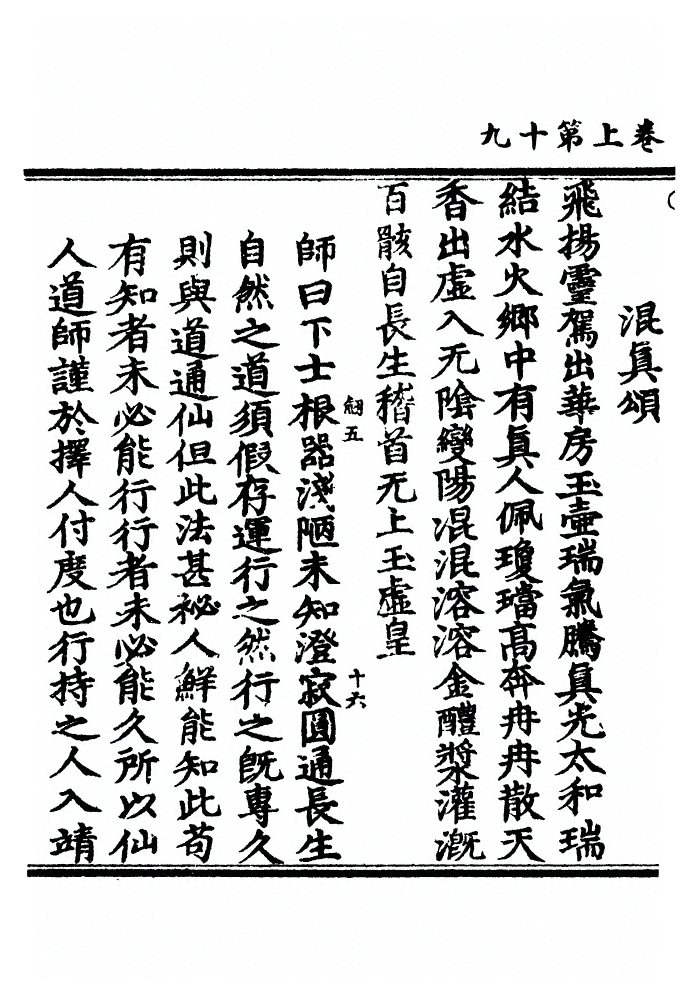 卷上第十九
混真頌
飛揚靈駕出華房玉壺瑞氣騰真光太和瑞
結水火鄉中有真人佩瓊璫高奔冉冉散天
香出虛入无陰變陽混混溶溶金醴漿灌溉
百骸自長生稽首无上玉虛皇
師曰下士根器淺陋未知澄寂圓通長生
自然之道須假存運行之然行之既專久
則與道通仙但此法甚祕人鮮能知此苟
有知者未必能行行者未必能久所以仙
人道師謹於擇人付度也行持之人入靖
五
十六